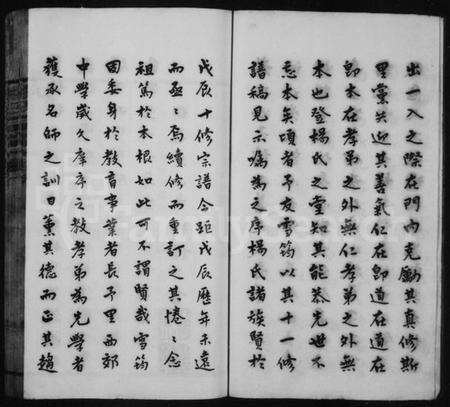 出一入之際在門內克勵其真修斯
里黨共迎其善氣仁在即道在道在
即本在孝弟之外無仁孝弟之外無
本也登楊氏之堂知其能恭先世不
忘本矣頃者予友雪筠以其十一修
譜稿見示囑為之序楊氏諸族賢於
戊辰十修宗譜今距戊辰歷年未遠
而亟亟焉續修而重訂之其惓惓之念
祖篤於本根如此可不謂賢哉雪筠
固委身於教育事業者長予里西郊
中學歲久庠序之教孝弟為先學者
獲承名師之訓日薰其德而正其趨